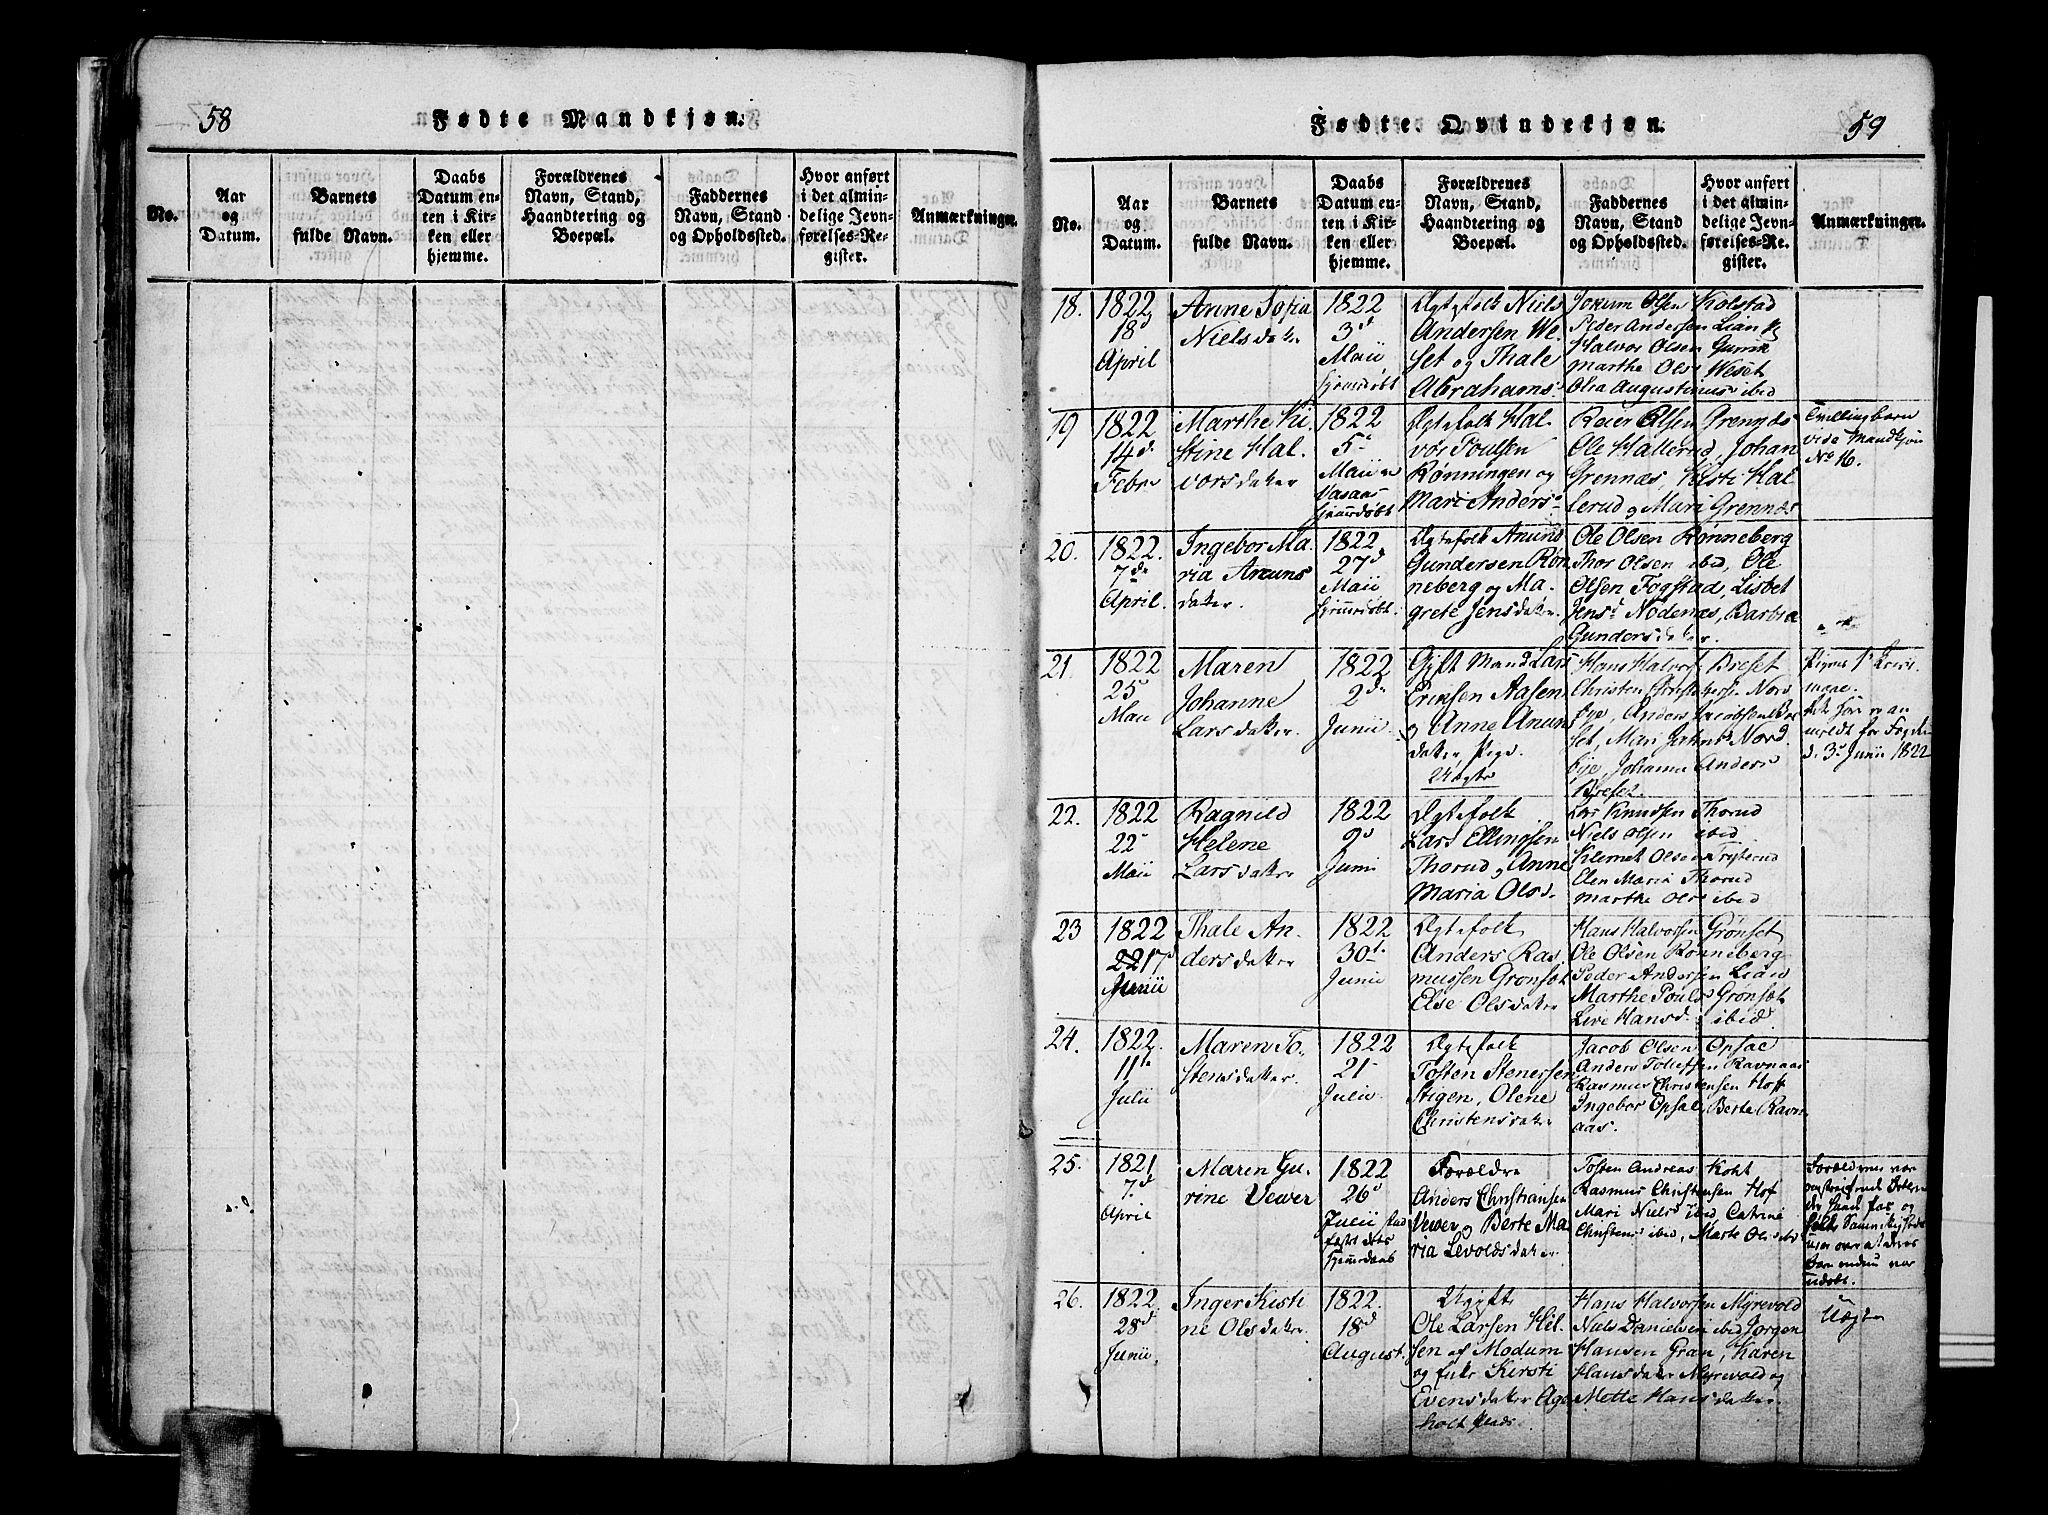 58
Fødte Mandkjøn.
No.
Aar
og
Datum.
Barnets
fulde Navn.
Daabs
Datum en-
ten i Kir-
ken eller
hjemme.
Forældrenes
Navn, Stand,
Haandtering og
Boepæl.
Faddernes
Navn, Stand
og Opholdssted.
Hvor anført
i det almin-
delige Jevn-
førelses-Re-
gister.
Anmærkninger.
Fødte Qvindekjøn.
59
No.
Aar
og
Datum.
Barnets
fulde Navn.
Daabs
Datum en-
ten i Kir-
ken eller
hjemme.
Forældrenes
Navn, Stand,
Haandtering og
Boepæl.
Faddernes
Navn, Stand
og Opholdssted.
Hvor anført
i det almin-
delige Jevn-
førelses-Re-
gister.
Anmærkninger.
18.
1822
18d
April
Anne Sofia
Nielsdatter
1822
3d
Maii
hjemdøbt
Ægtefolk Niels
Andersen We-
set og Thale
Abrahams
Jokum Olsen Kolstad
Peder Andersen Lian
Halvor Olsen
Marthe Ols Weset
Olia Augustinus ibid
19
1822
14d
Febr
Marthe Ki
stine Hal
vorsdatter
1822
5
Maii
Vasaas
hjemdøbt
Ægtefolk Hal
vor Poulsen
Rønningen og
Mari Anders
Reier Olsen Grennæs
Ole Hallerud, Johan
Grennæs, Kisti Hal
lerud og Mari Grennæs
Tvillingbarn
vide Mandkjøn
No 16.
20.
1822.
7de
April.
Ingebor Ma-
ria Anuns
datter.
1822
27d
Maii
hjemdøbt.
Ægtefolk Anund
Gundersen Røn
neberg og Ma-
grete Jensdatter.
Ole Olsen Rønneberg
Thor Olsen ibid, Ole
Olsen Fogstad, Lisbet
Jensd Nodenæs, Barbra
Gundersdatter.
21.
1822
25
Mau
Maren
Johanne
Larsdatter.
1822
2d
Junii
Gift Mand Lars
Eriksen Aasen
og Anne Anun
datter Pige
Uægte
Hans Halvors Breset
Christen Nord
bye, Anders Jacobsen
set, Mari Johns Nord
bye, Johanne Anders
Breset.
Pigens 1ste
maal.
meldt for Fogden
d. 3d Junii 1822
22.
1822
22
Maii
Ragnild
Helene
Larsdatter
1822
9d
Juni
Ægtefolk
Lars Ellingsen
Thorud, Anne
Maria Olsd.
Lars Knudsen Thorud
Niels Olsen ibid
Klemet Olsen
Elen Maria Thorud
Marthe Ols ibid
23
1822
22 17
Junii
Thale An-
dersdatter
1822
30te
Junii
Ægtefolk
Anders Ras
mussen Gronset
Else Olsdatter
Hans Halvorsen Grønset
Ole Olsen Rønneberg
Peder Andersen Lian
Marthe Pouls Grønset
Live Hansd. ibid
24.
1822.
11te
Julii
Maren To-
stensdatter.
1822
21
Julii
Ægtefolk
Tosten Stenersen
Stigen, Olene
Christensdatter
Jacob Olsen Opsal
Anders Tollefsen Ravnaas
Rasmus Christensen Hoff
Ingebor Opsal, Berte Ravn
aas.
25.
1821
7d
April
Maren Gu-
rine Vewer
1822
26d
Julii stad
fæstedets
hjemdaab
Forældre
Anders Christiansen
Vewer og Berte Ma
ria Levoldsdatter
Tosten Andreas Koht
Rasmus Christensen Hof
Mari Niels ibid Catrine
Christens ibid, Marte Ols ibid
Forældrene var
omstreifende
Barn endnu var
udøbt.
26.
1822
28d
Junii
Inger Kisti
ne Olsdatter
1822.
18d
August.
Ugifte
Ole Larsen Hil-
sen af Modum
og Enke Kirsti
Evensdatter Age
holt plads
Hans Halvorsen Myrevold
Niels Danielsen ibid Jørgen
Hansen Gran, Karen
Hansdatter Myrevold og
Mette Hansdatter
Uægte